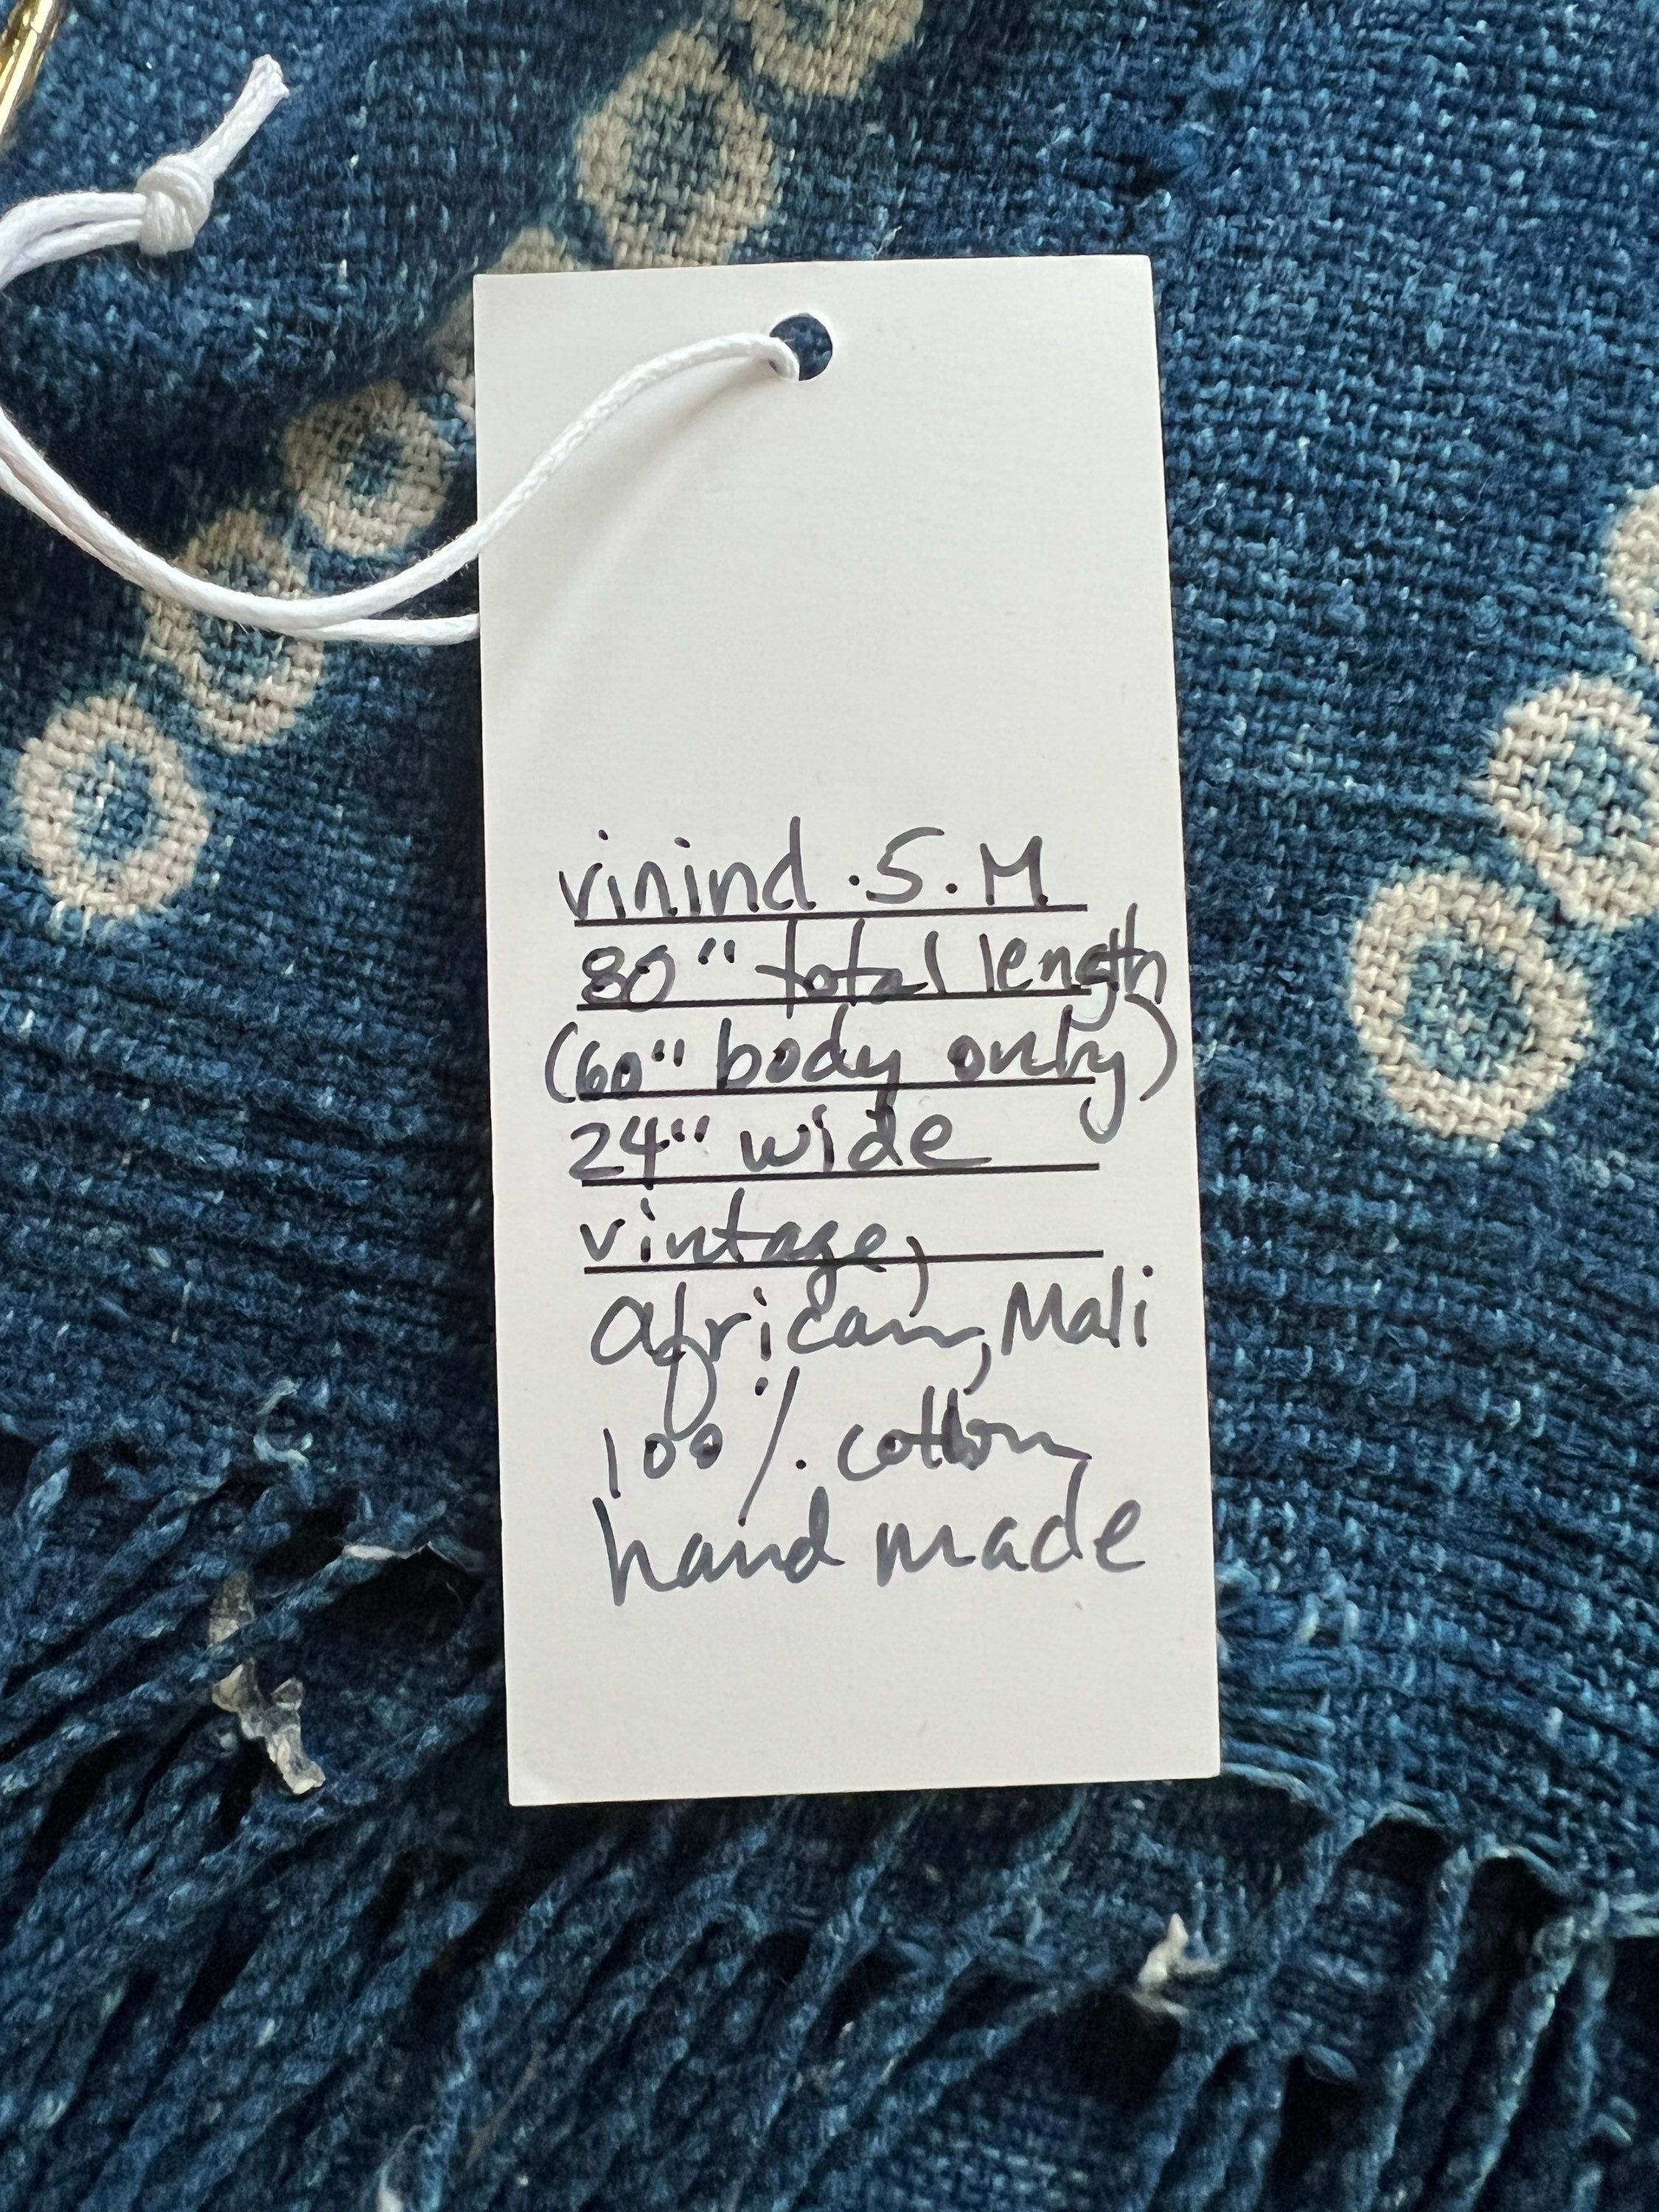 vinind .S.M
80" total length
(60" body only)
24" wide
vintage,
african, Mali
100% cotton
hand made